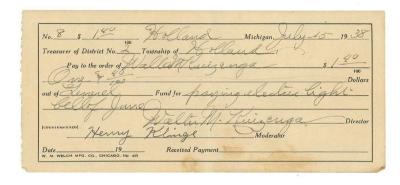 No. 8 $ 1 80/100 Holland Michigan, July 15 1938
Treasurer of District No. 2 Township of Holland
Pay to the order of Walter M Kuizenga $ 1 80/100
One & 80/100 Dollars
out of General Fund for paying electric light
bell of June
Walter M. Kuizenga Director
(Countersigned) Henry Klinge Moderator
Date 19 Received Payment
W. M. WELCH MFG. CO., CHICAGO,